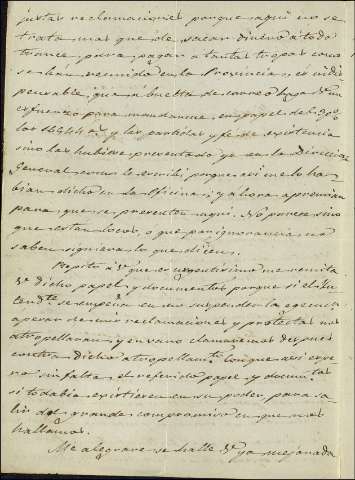 justas reclamaciones porque aqui no se
trata mas que de sacar dinero a todo
trance para pagar a tantas tropas como
se han reunido en la Provincia, es indis
pensable, que a buelta de correo haga V un
esfuerzo para mandarme, en papel del
los 14444 rs y las partidas y fe de existencia
sino las hubiese presentado ya en la Direccion
General como le escribi porque asi me lo ha
bian dicho en la Oficina; y ahora apremian
para que se presenten aqui. No parece sino
que estan locos, o que por ignorancia no
saben siquiera lo que dicen.
Repito a V que es urgentisimo me remita
V dicho papel y documentos porque si el Yn
tendte se empeña en no suspender la egecucn
apesar de mis reclamaciones y protestas nos
atropellaran, y en vano clamariamos despues
contra dicho atropellamto. Conque asi espe
ro sin falta el referido papel y documtos
si todabia existiesen en su poder para sa
lir del grande compromiso en que nos
hallamos.
Me alegrare se halle V ya mejorada